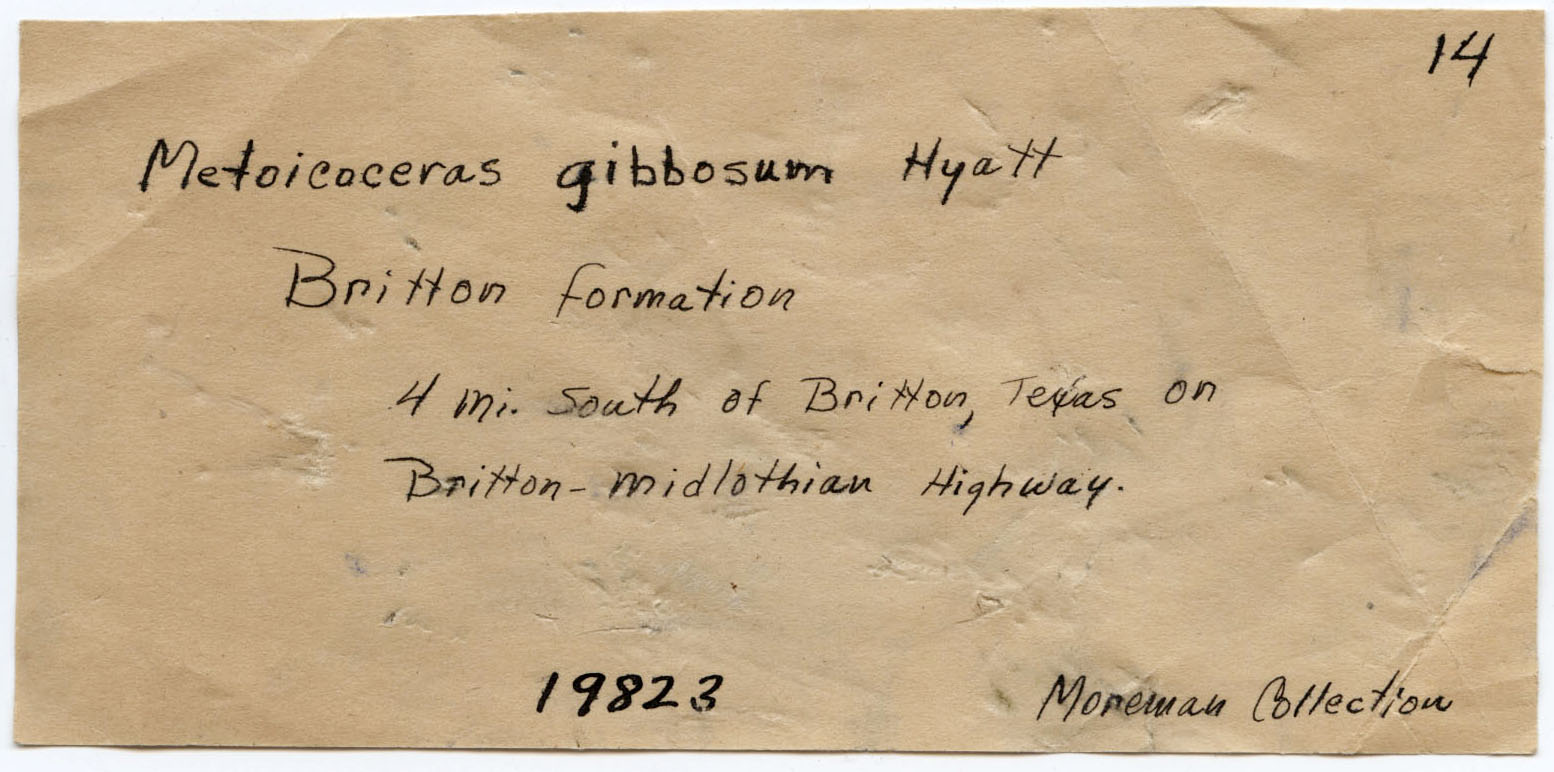 14
Metoicoceras gibbosum Hyatt
Britton formation
4 mi. South of Britton, Texas on
Britton-Midlothian Highway.
19823
Moreman Collection